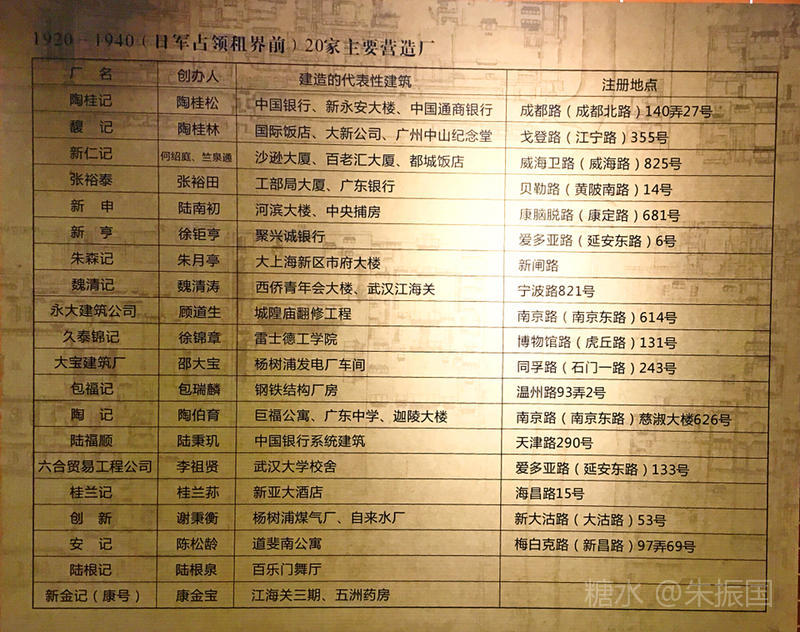 1920-1940（日军占领租界前）20家主要营造厂
厂 名 创办人 建造的代表性建筑 注册地点
陶桂记 陶桂松 中国银行、新永安大楼、中国通商银行 成都路（成都北路）140弄27号
馥 记 陶桂林 国际饭店、大新公司、广州中山纪念堂 戈登路（江宁路）355号
新仁记 何绍庭、竺泉通 沙逊大厦、百老汇大厦、都城饭店 威海卫路（威海路）825号
张裕泰 张裕田 工部局大厦、广东银行 贝勒路（黄陂南路）14号
新 申 陆南初 河滨大楼、中央捕房 康脑脱路（康定路）681号
新 亨 徐钜亨 聚兴诚银行 爱多亚路（延安东路）6号
朱森记 朱月亭 大上海新区市府大楼 新闸路
魏清记 魏清涛 西侨青年会大楼、武汉江海关 宁波路821号
永大建筑公司 顾道生 城隍庙翻修工程 南京路（南京东路）614号
久泰锦记 徐锦章 雷士德工学院 博物馆路（虎丘路）131号
大宝建筑厂 邵大宝 杨树浦发电厂车间 同孚路（石门一路）243号
包福记 包瑞麟 钢铁结构厂房 温州路93弄2号
陶 记 陶伯育 巨福公寓、广东中学、迦陵大楼 南京路（南京东路）慈淑大楼626号
陆福顺 陆秉玑 中国银行系统建筑 天津路290号
六合贸易工程公司 李祖贤 武汉大学校舍 爱多亚路（延安东路）133号
桂兰记 桂兰荪 新亚大酒店 海昌路15号
创 新 谢秉衡 杨树浦煤气厂、自来水厂 新大沽路（大沽路）53号
安 记 陈松龄 道斐南公寓 梅白克路（新昌路）97弄69号
陆根记 陆根泉 百乐门舞厅
新金记（康号） 康金宝 江海关三期、五洲药房
糖水 @朱振国